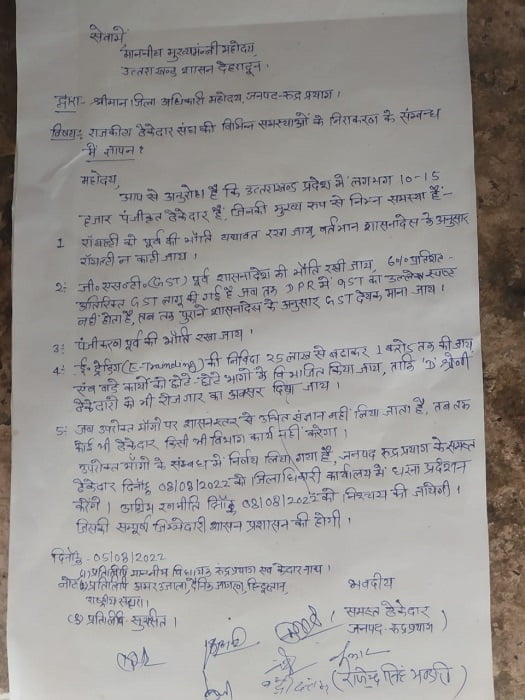 सेवामें,
माननीय मुख्यमन्त्री महोदय,
उत्तराखण्ड शासन देहरादून।
द्वारा:- श्रीमान जिला अधिकारी महोदय, जनपद-रुद्रप्रयाग।
विषय:- राजकीय ठेकेदार संघ की विभिन्न समस्याओं के निराकरण के सम्बन्ध
में ज्ञापन?
महोदय,
आप से अनुरोध है कि उत्तराखण्ड प्रदेश में लगभग 10-15
हजार पंजीकृत ठेकेदार हैं जिनकी मुख्य रूप से निम्न समस्या हैं:-
1 रॉयल्टी को पूर्व की भाँति यथावत रखा जाय, वर्तमान शासनादेश के अनुसार
रॉयल्टी न काटी जाय।
2:- जी०एस०टी० (GST) पूर्व शासनादेश की भाँति रखी जाय, 6% प्रतिशत-
अतिरिक्त GST लागू की गई है जब तक DPR में GST का उल्लेख स्पष्ट
नहीं होता है, तब तक पुराने शासनादेश के अनुसार GST देयक माना जाय।
3:- पंजीकरण पूर्व की भाँति रखा जाय।
4:- ई-ट्रेडिंग (E-Tranding) की निविदा 25 लाख से बढाकर 1 करोड़ तक की जाय
एंव बड़े कार्यो को छोटे-छोटे भागों में विभाजित किया जाय, ताकि 'D' श्रेणी
ठेकेदारों को भी रोजगार का अवसर दिया जाय।
5:- जब उपरोक्त माँगों पर शासनस्तर से उचित संज्ञान नहीं लिया जाता है, तब तक
कोई भी ठेकेदार किसी भी विभाग कार्य नहीं करेगा।
उपरोक्त माँगों के सम्बन्ध में निर्णय लिया गया है, जनपद रुद्रप्रयाग के समस्त
ठेकेदार दिनाँक 08/08/2022 को जिलाधिकारी कार्यालय में धरना प्रदेशन
करेंगे। अग्रिम रणनीति दिनाँक 08/08/2022 को निश्चय की जायेगी।
जिसकी सम्पूर्ण जिम्मेदारी शासन प्रशासन की होगी।
दिनाँक:- 05/08/2022
प्रतिलिपि माननीय विधायक रुद्रप्रयाग एवं केदारनाथ।
नोट प्रतिलिपि अमर उजाला, दैनिक जागरण, हिन्दुस्तान,
राष्ट्रीय सहारा।
(3) प्रतिलिपि- सुरक्षित।
भवदीय
(समस्त ठेकेदार
जनपद-रुद्रप्रयाग)